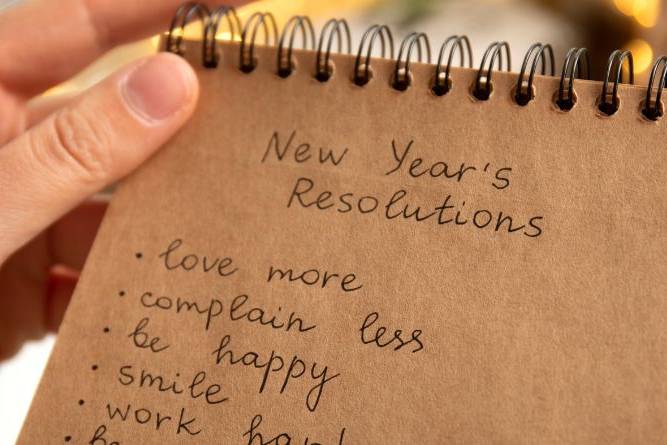 New Year's
Resolutions
· love more
· complain less
· be happy
· smile
· work